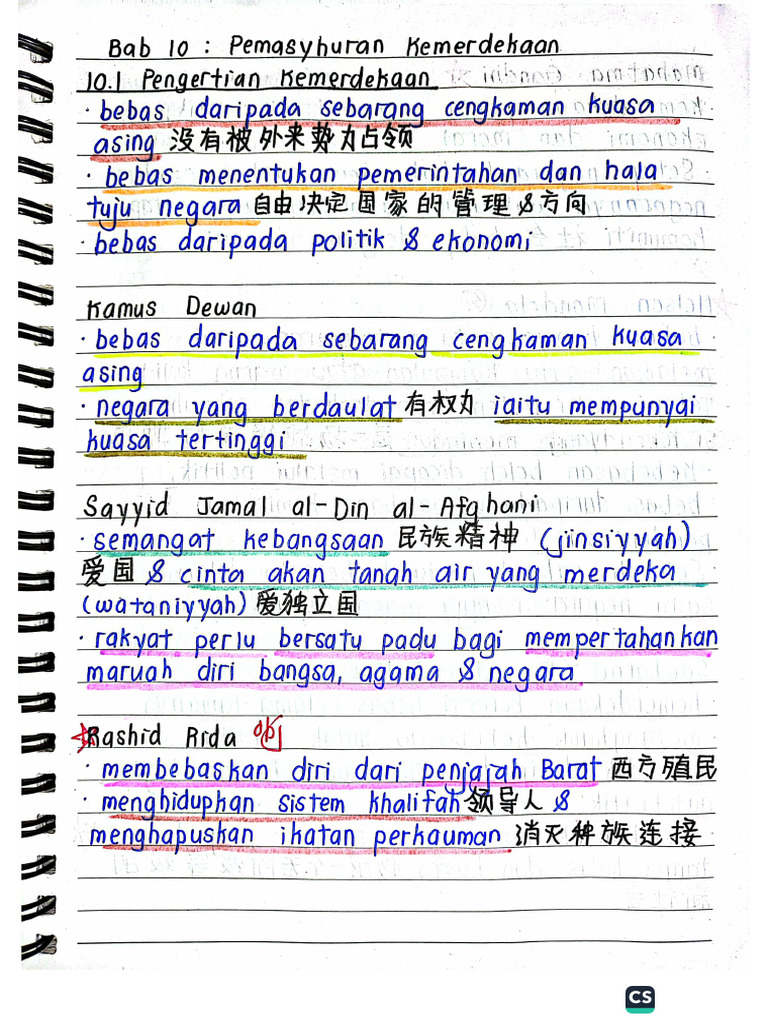 Bab 10 : Pemasyhuran Kemerdekaan
10.1 Pengertian Kemerdekaan
· bebas daripada sebarang cengkaman kuasa
asing 没有被外来势力占领
· bebas menentukan pemerintahan dan hala
tuju negara 自由决定国家的管理 & 方向
· bebas daripada politik & ekonomi
Kamus Dewan
· bebas daripada sebarang cengkaman kuasa
asing
· negara yang berdaulat 有权力 iaitu mempunyai
kuasa tertinggi
Sayyid Jamal al-Din al-Afghani
· semangat kebangsaan 民族精神 (jinsiyyah)
爱国 & cinta akan tanah air yang merdeka
(wataniyyah) 爱独立国
· rakyat perlu bersatu padu bagi mempertahankan
maruah diri bangsa, agama & negara
Rashid Rida
· membebaskan diri dari penjajah Barat 西方殖民
· menghidupkan sistem khalifah 领导人 &
menghapuskan ikatan perkauman 消灭种族连接
CS